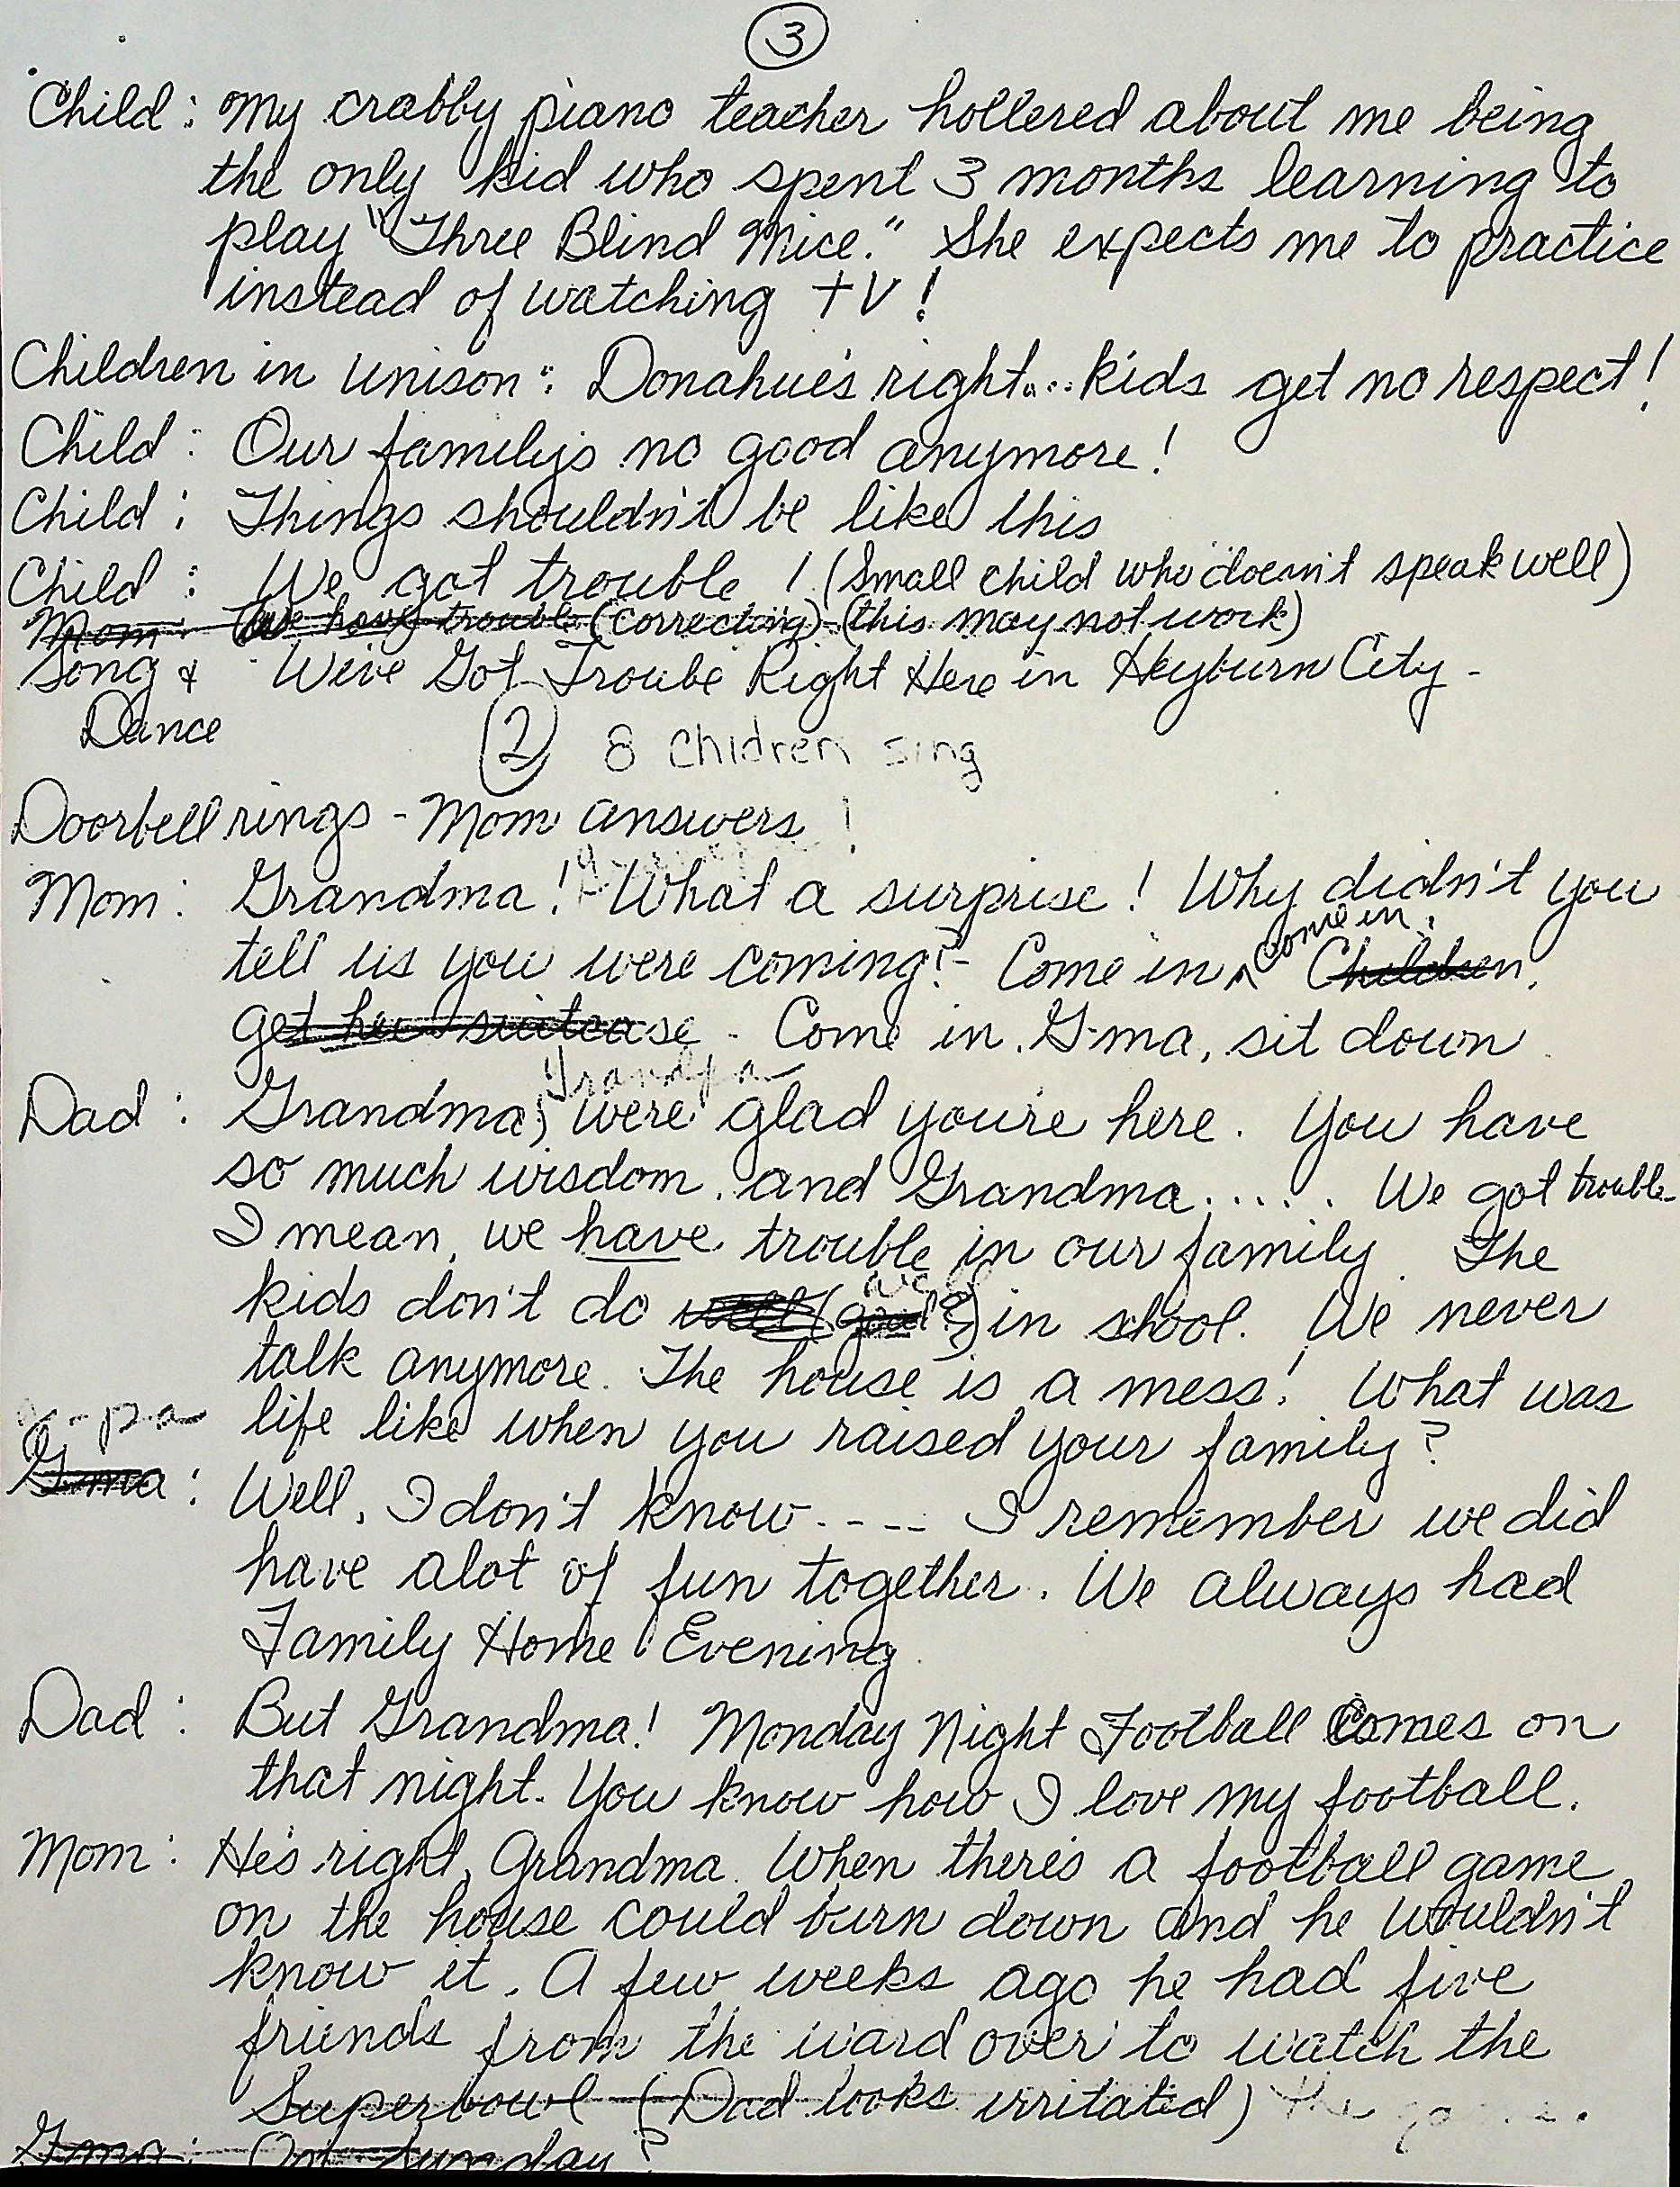 3
Child: My crabby piano teacher hollered about me being
the only kid who spent 3 months learning to
play "Three Blind Mice." She expects me to practice
instead of watching TV!
Children in unison: Donahue's right... kids get no respect!
Child: Our family's no good anymore!
Child: Things shouldn't be like this
Child: We got trouble! (Small child who doesn't speak well)
Mom: We have trouble (correcting) (this may not work)
Song & We've Got Trouble Right Here in Heyburn City -
Dance
2 8 Chidren sing
Doorbell rings - Mom answers!
Mom: Grandma! What a surprise! Why didn't you
tell us you were coming? - Come in come in. Children,
get her suitcase - Come in. G-ma, sit down
Grandpa
Dad: Grandma, we're glad you're here. You have
so much wisdom. and Grandma..... We got trouble
I mean, we have trouble in our family. The
well
kids don't do well (good?) in school. We never
talk anymore. The house is a mess! What was
G-pa life like when you raised your family?
G-ma: Well, I don't know.---- I remember we did
have alot of fun together. We always had
Family Home Evening.
Dad: But Grandma! Monday Night Football Comes on
that night. You know how I love my football.
Mom: He's right, Grandma. When there's a football game
on the house could burn down and he wouldn't
know it. A few weeks ago he had five
friends from the ward over to watch the
Superbowl (Dad looks irritated) the game.
Gma: On Sunday?